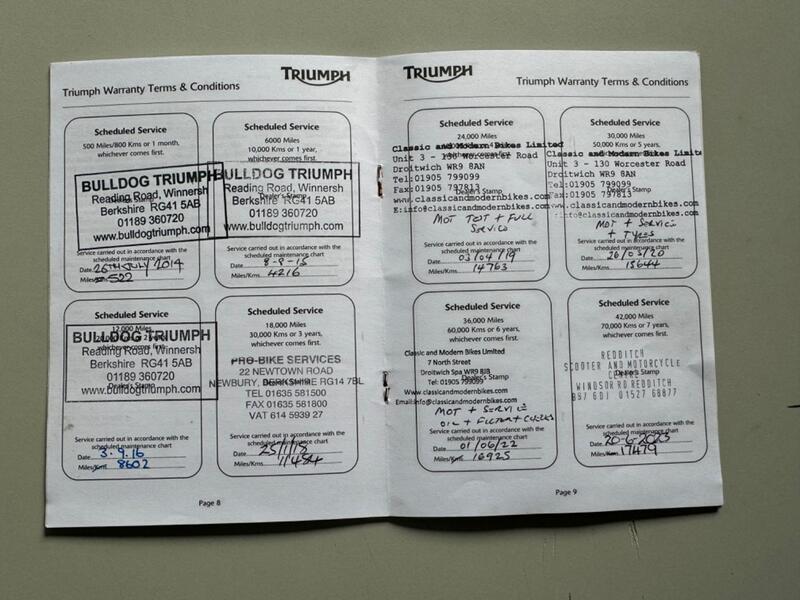 TRIUMPH
Triumph Warranty Terms & Conditions
Scheduled Service
500 Miles/800 Kms or 1 month,
whichever comes first.
BULLDOG TRIUMPH
Reading Road, Winnersh
Dealer's Stamp
Berkshire RG41 5AB
01189 360720
www.bulldogtriumph.com
Service carried out in accordance with the
scheduled maintenance chart
Date 26TH JULY 2014
Miles/Kms 522
Scheduled Service
6000 Miles
10,000 Kms or 1 year,
whichever comes first.
BULLDOG TRIUMPH
Reading Road, Winnersh
Dealer's Stamp
Berkshire RG41 5AB
01189 360720
www.bulldogtriumph.com
Service carried out in accordance with the
scheduled maintenance chart
Date 8-8-15
Miles/Kms 4216
Scheduled Service
12,000 Miles
whichever comes first.
BULLDOG TRIUMPH
Reading Road, Winnersh
Berkshire RG41 5AB
01189 360720
Dealer's Stamp
www.bulldogtriumph.com
Service carried out in accordance with the
scheduled maintenance chart
Date 3.9.16
Miles/Kms 8602
Scheduled Service
18,000 Miles
30,000 Kms or 3 years,
whichever comes first.
PRO-BIKE SERVICES
22 NEWTOWN ROAD
NEWBURY, BERKSHIRE RG14 7BL
Dealer's Stamp
TEL 01635 581500
FAX 01635 581800
VAT 614 5939 27
Service carried out in accordance with the
scheduled maintenance chart
Date 25/1/18
Miles/Kms 11484
Page 8
TRIUMPH
Triumph Warranty Terms & Conditions
Scheduled Service
24,000 Miles
whichever comes first.
Classic and Modern Bikes Limited
Unit 3 - 130 Worcester Road
Droitwich WR9 8AN
Tel:01905 799099
Dealer's Stamp
Fax:01905 797813
www.classicandmodernbikes.com
E:info@classicandmodernbikes.com
MOT TEST + FULL
SERVICE
Service carried out in accordance with the
scheduled maintenance chart
Date 03/04/19
Miles/Kms 14763
Scheduled Service
30,000 Miles
50,000 Kms or 5 years,
whichever comes first.
Classic and Modern Bikes Limited
Unit 3 - 130 Worcester Road
Droitwich WR9 8AN
Tel:01905 799099
Dealer's Stamp
Fax:01905 797813
www.classicandmodernbikes.com
:info@classicandmodernbikes.com
MOT + SERVICE
+ TYRES
Service carried out in accordance with the
scheduled maintenance chart
Date 26/03/20
Miles/Kms 15644
Scheduled Service
36,000 Miles
60,000 Kms or 6 years,
whichever comes first.
Classic and Modern Bikes Limited
7 North Street
Droitwich Spa WR9 8JB
Tel: 01905 799099
Dealer's Stamp
Www.classicandmodernbikes.com
Email:info@classicandmodernbikes.com
MOT + SERVICE
OIL + FILTER +
Service carried out in accordance with the
scheduled maintenance chart
Date 01/06/22
Miles/Kms 16925
Scheduled Service
42,000 Miles
70,000 Kms or 7 years,
whichever comes first.
REDDITCH
SCOOTER AND MOTORCYCLE
CENTRE
Dealer's Stamp
WINDSOR RD REDDITCH
B97 6DJ 01527 68877
Service carried out in accordance with the
scheduled maintenance chart
Date 20-6-2023
Miles/Kms 17479
Page 9